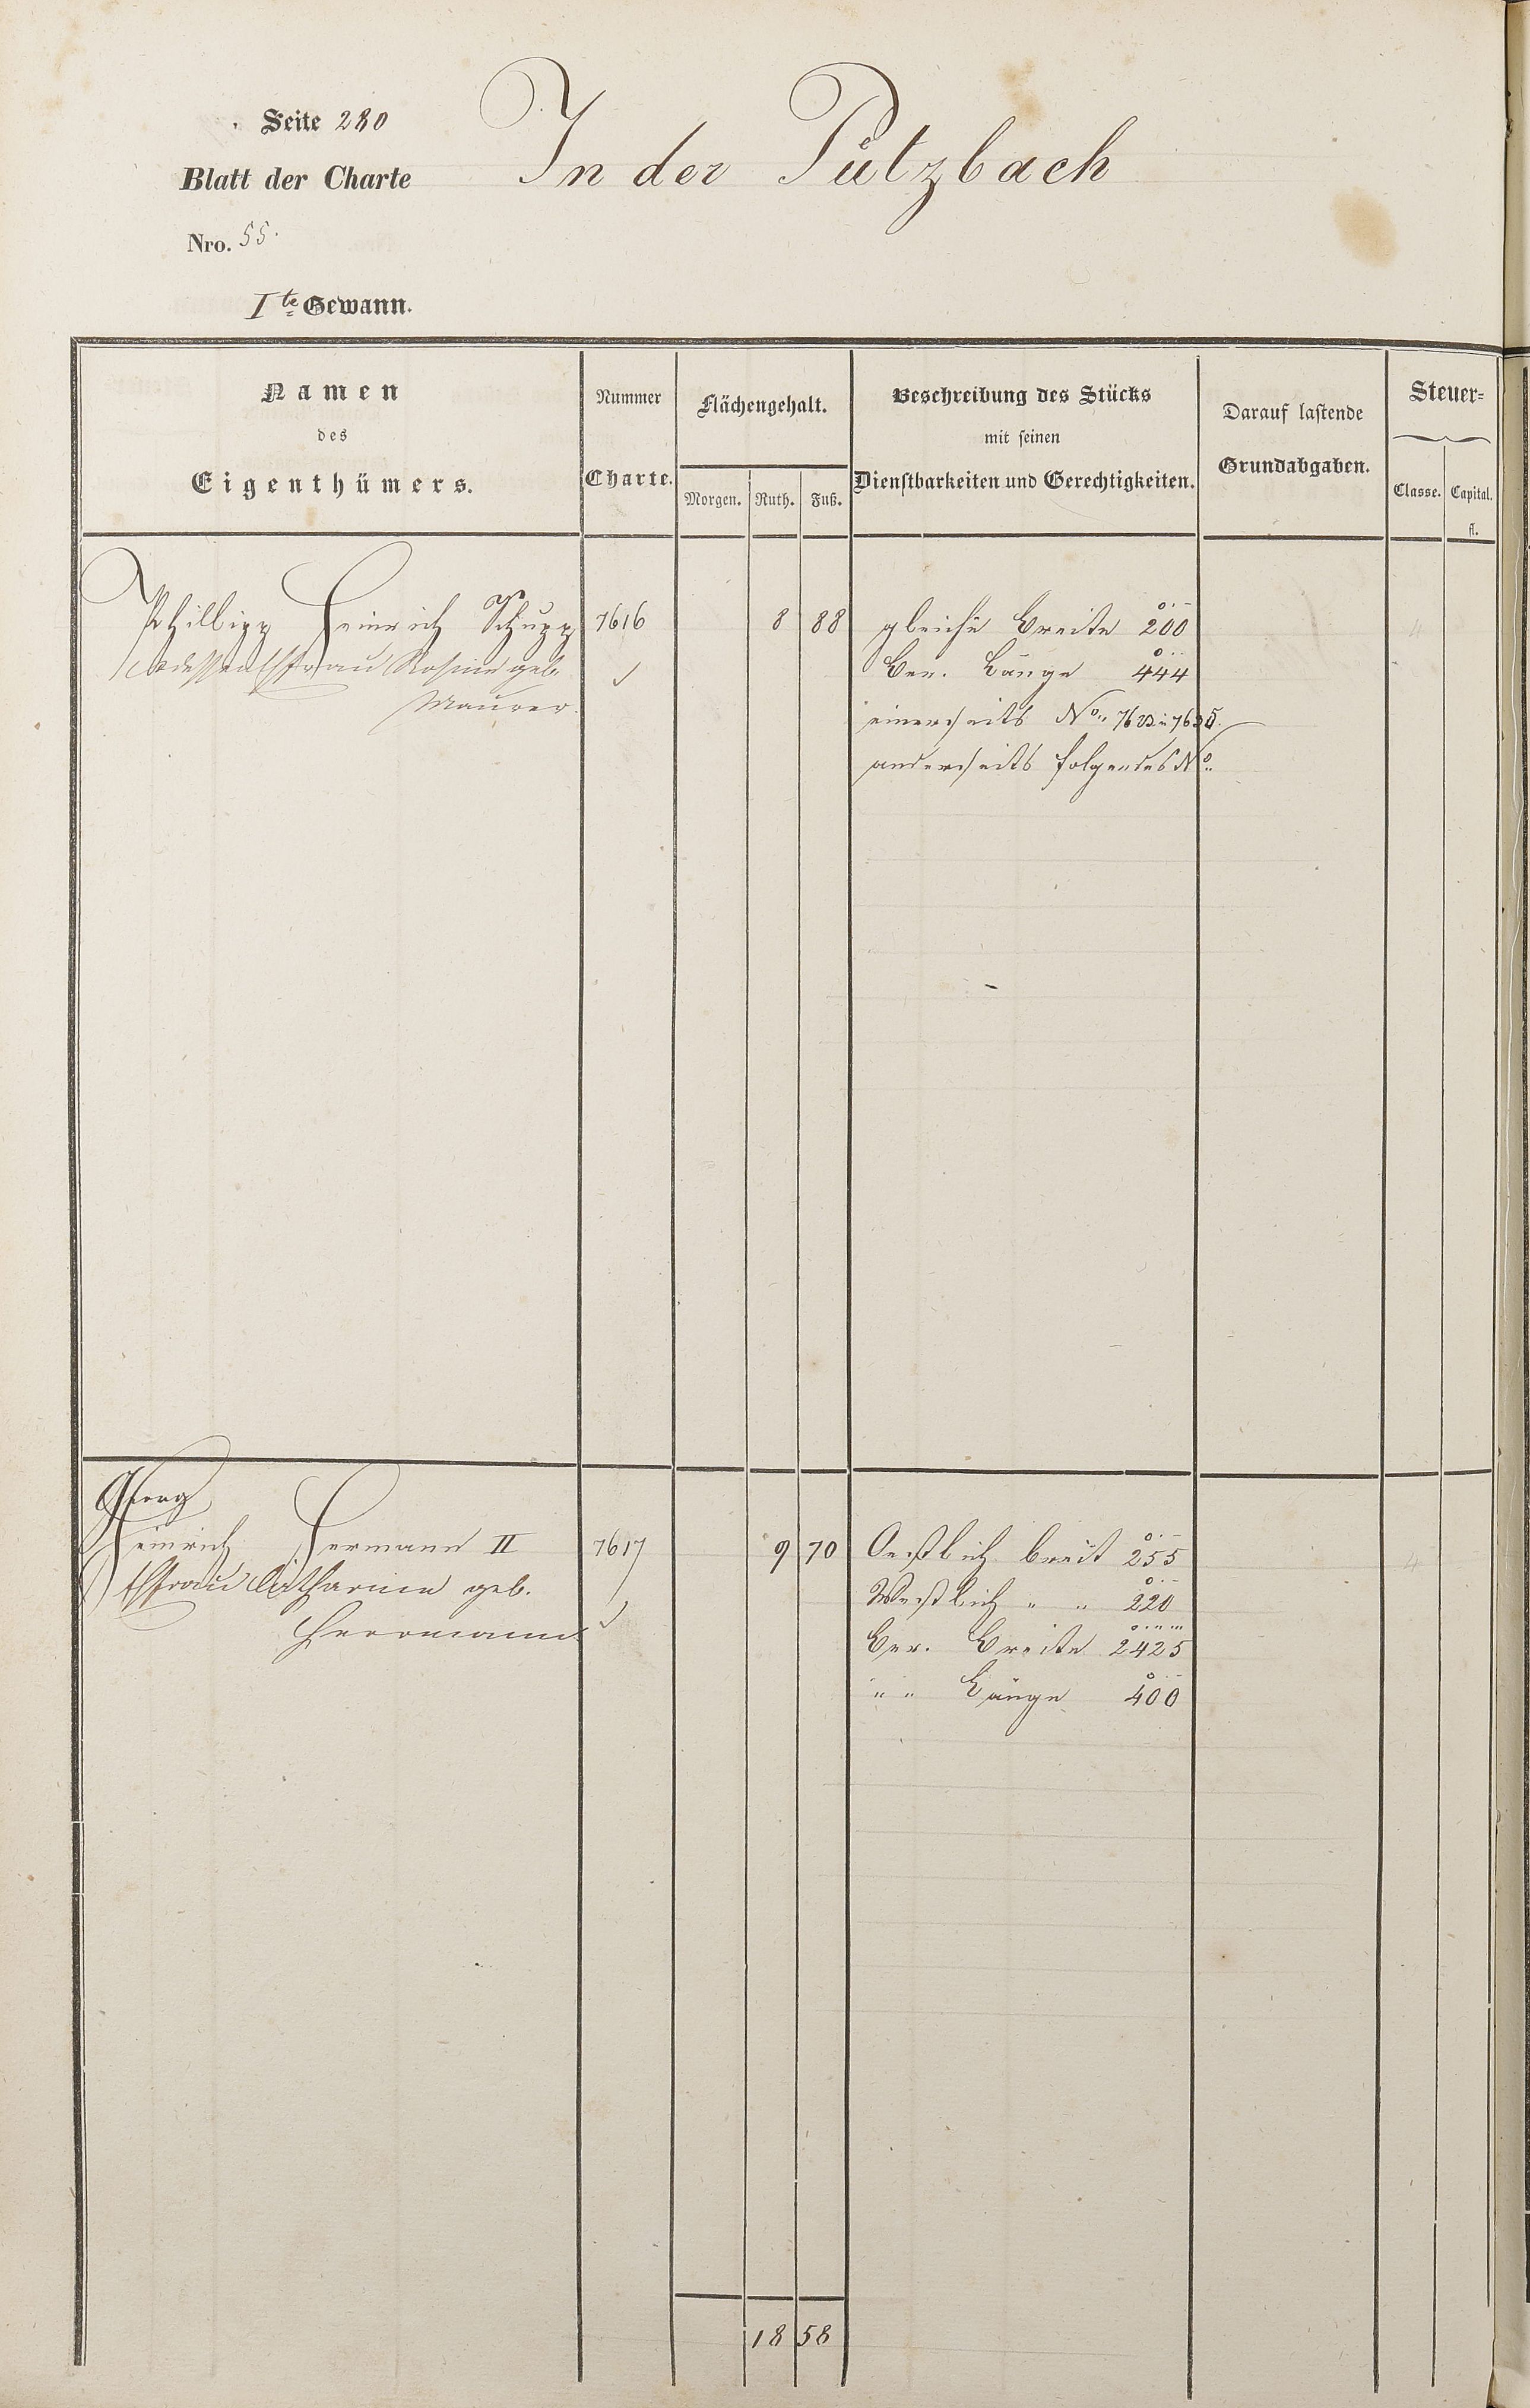 Seite 280
In der Pützbach
Blatt der Charte
Nro. 55.
I te Gewann.
Namen
des
Eigenthümers.
Nummer
Charte.
Flächengehalt.
Morgen. Ruth. Fuß.
Beschreibung des Stücks
mit seinen
Dienstbarkeiten und Gerechtigkeiten.
Darauf lastende
Grundabgaben.
Steuer=
Classe. Capital.
fl.
Phillipp Heinrich Schupp 7616 8 88 gleiche Breite 200 4
Ehefrau Rosine geb. Ber. Länge 444
Maurer einerseits No. 7635
anderseits folgendes No.
Georg
Heinrich Hermann II 7617 9 70 Oestlich breit 255 4
Ehefrau Catharine geb. Westlich " " 220
Herrmann Ber. Breite 2425
" " Länge 400
18 58